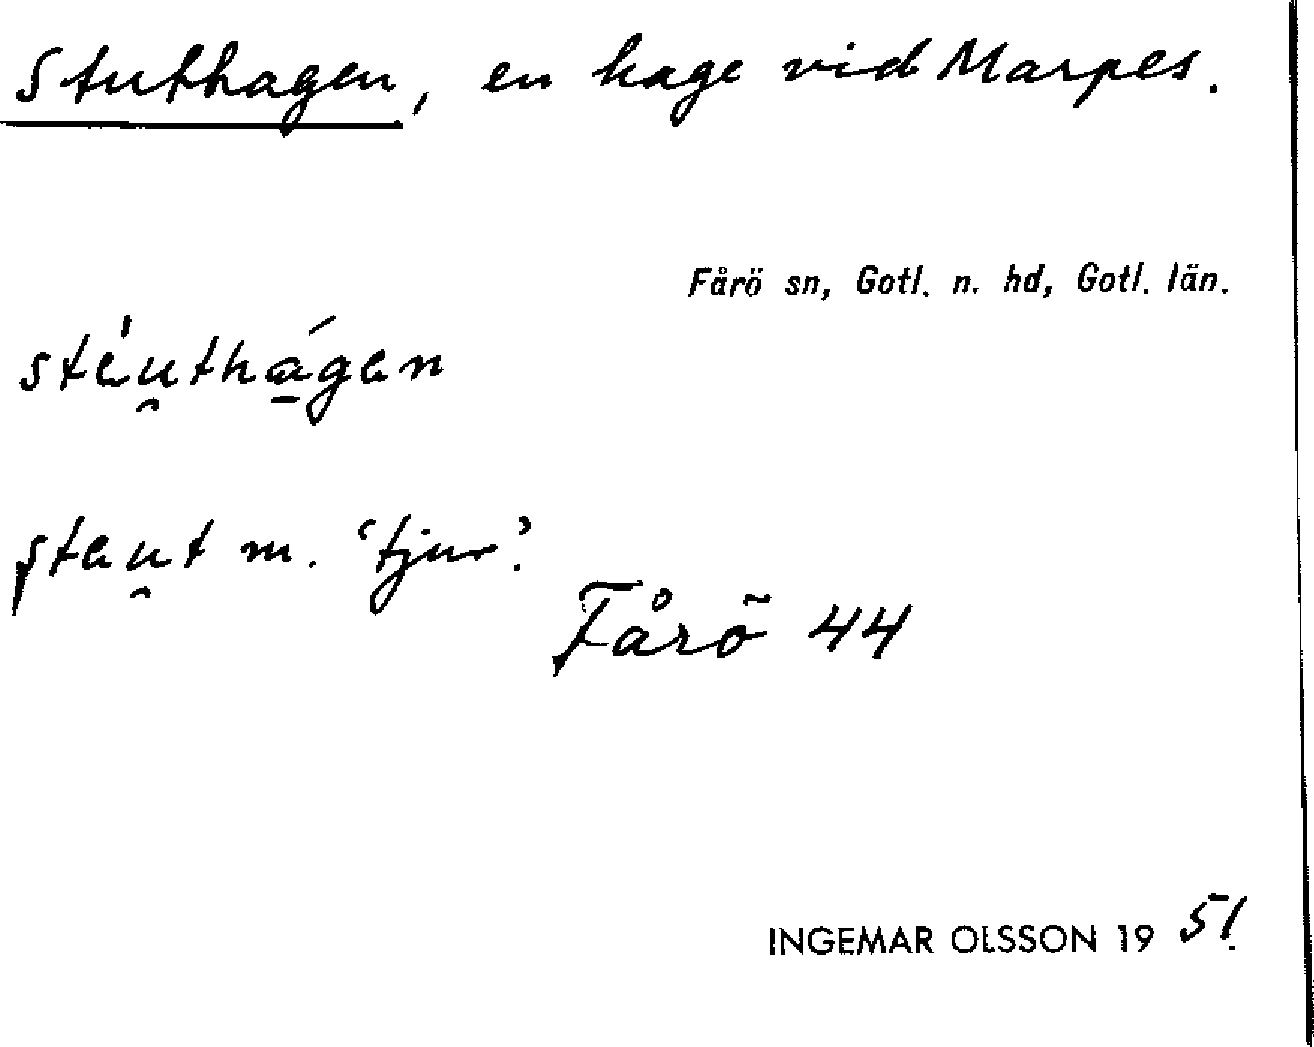 Stuthagen, en hage vid Marpes.
Fårö sn, Gotl. n. hd, Gotl. län.
stéu̯thā́gen
steu̯t m. 'tjur'.
Fårö 44
INGEMAR OLSSON 19 51.